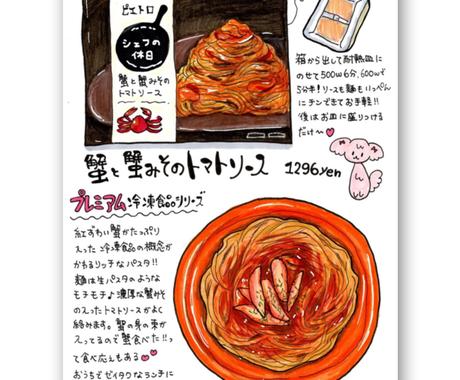 ピエトロ
シェフの
休日
蟹と蟹みその
トマトソース
箱から出して耐熱皿に
のせて500w6分、600wで
5分半!ソースも麺もいっぺん
にチンできてお手軽!!
後はお皿に盛りつける
だけ〜
蟹と蟹みそのトマトソース 1296yen
プレミアム冷凍食品シリーズ
紅ずわい蟹がたっぷり
入った冷凍食品の概念が
かわるリッチなパスタ!!
麺は生パスタのような
モチモチ♪濃厚な蟹みそ
の入ったトマトソースがよく
絡みます。蟹の身の束が
入ってるので蟹食べた!!っ
て食べ応えもある
おうちでゼイタクなランチに